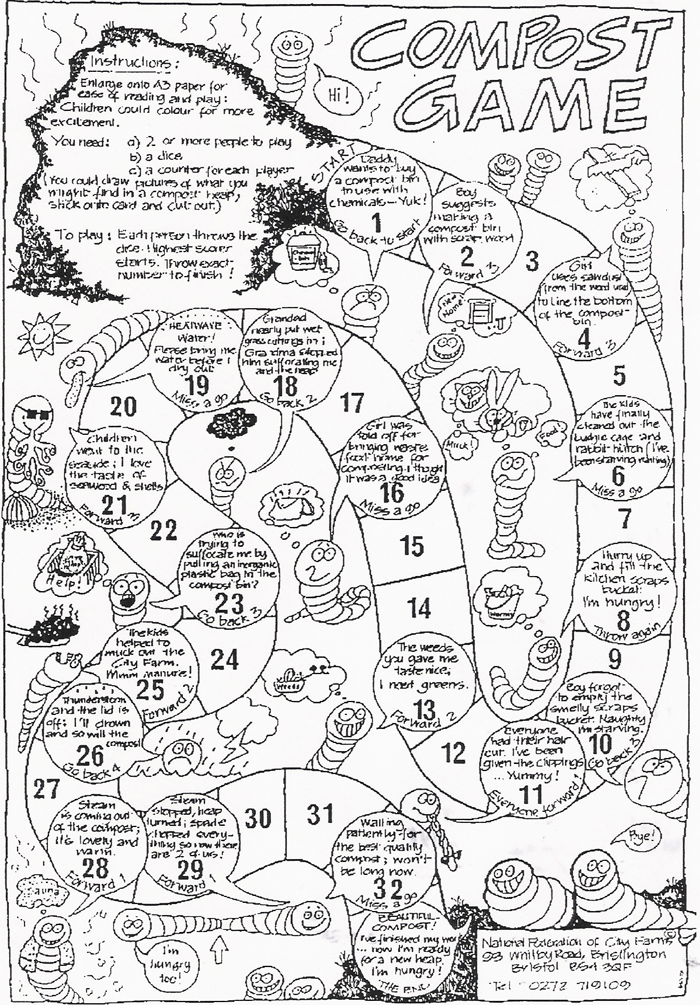 COMPOST
GAME
Instructions:
Enlarge onto A3 paper for
ease of reading and play:
Children could colour for more
excitement.
You need: a) 2 or more people to play
b) a dice
c) a counter for each player
(You could draw pictures of what you
might find in a compost heap,
stick onto card and cut out.)
To play: Each person throws the
dice. Highest scorer
starts. Throw exact
number to finish!
Hi!
START
Daddy
wants to buy
a compost bin
to use with
chemicals - Yuk!
1
Go back to start
Boy
suggests
making a
compost bin
with scrap wood
2
Forward 3
3
Girl
uses sawdust
from the wood used
to line the bottom
of the compost
bin.
4
Forward 3
New
Home!
5
The kids
have finally
cleaned out the
budgie cage and
rabbit hutch (I've
been starving)
6
Miss a go
Muck!
Food!
7
Hurry up
and fill the
kitchen scraps
bucket:
I'm hungry!
8
Throw again
9
Boy forgot
to empty the
smelly scraps
bucket. Naughty
I'm starving.
10
Go back 3
Everyone
had their hair
cut. I've been
given the clippings
... Yummy!
11
Everyone forward 1
12
The weeds
you gave me
taste nice;
I need greens.
13
Forward 2
Weeds
14
15
Girl was
told off for
bringing horse's
foot home for
composting. I thought
it was a good idea
16
Miss a go
17
Grandad
nearly put wet
grass cuttings in;
Grandma stopped
him suffocating me
and the heap
18
Go back 2
HEATWAVE
Water!
Please bring me
water before I
dry out
19
Miss a go
20
Children
went to the
seaside; I love
the taste of
seaweed & shells
21
Forward 3
22
Who is
trying to
suffocate me by
putting an inorganic
plastic bag in the
compost bin?
23
Go back 3
Help!
24
The kids
helped to
muck out the
City Farm.
Mmm manure!
25
Forward 2
Thunderstorm
and the lid is
off; I'll drown
and so will the
compost
26
Go back 4
27
Steam
is coming out
of the compost;
it's lovely and
warm.
28
Forward 1
Sauna
Steam
stopped, heap
turned; spade
chopped every-
thing so now there
are 2 of us!
29
Forward 1
I'm
hungry
too!
30
31
Waiting
patiently for
the best quality
compost; won't
be long now.
32
Miss a go
BEAUTIFUL
COMPOST!
I've finished my work
... now I'm ready
for a new heap.
I'm hungry!
THE END
Bye!
National Federation of City Farms
93 Whitby Road, Brislington
Bristol BS4 3QF
Tel: 0272 719109